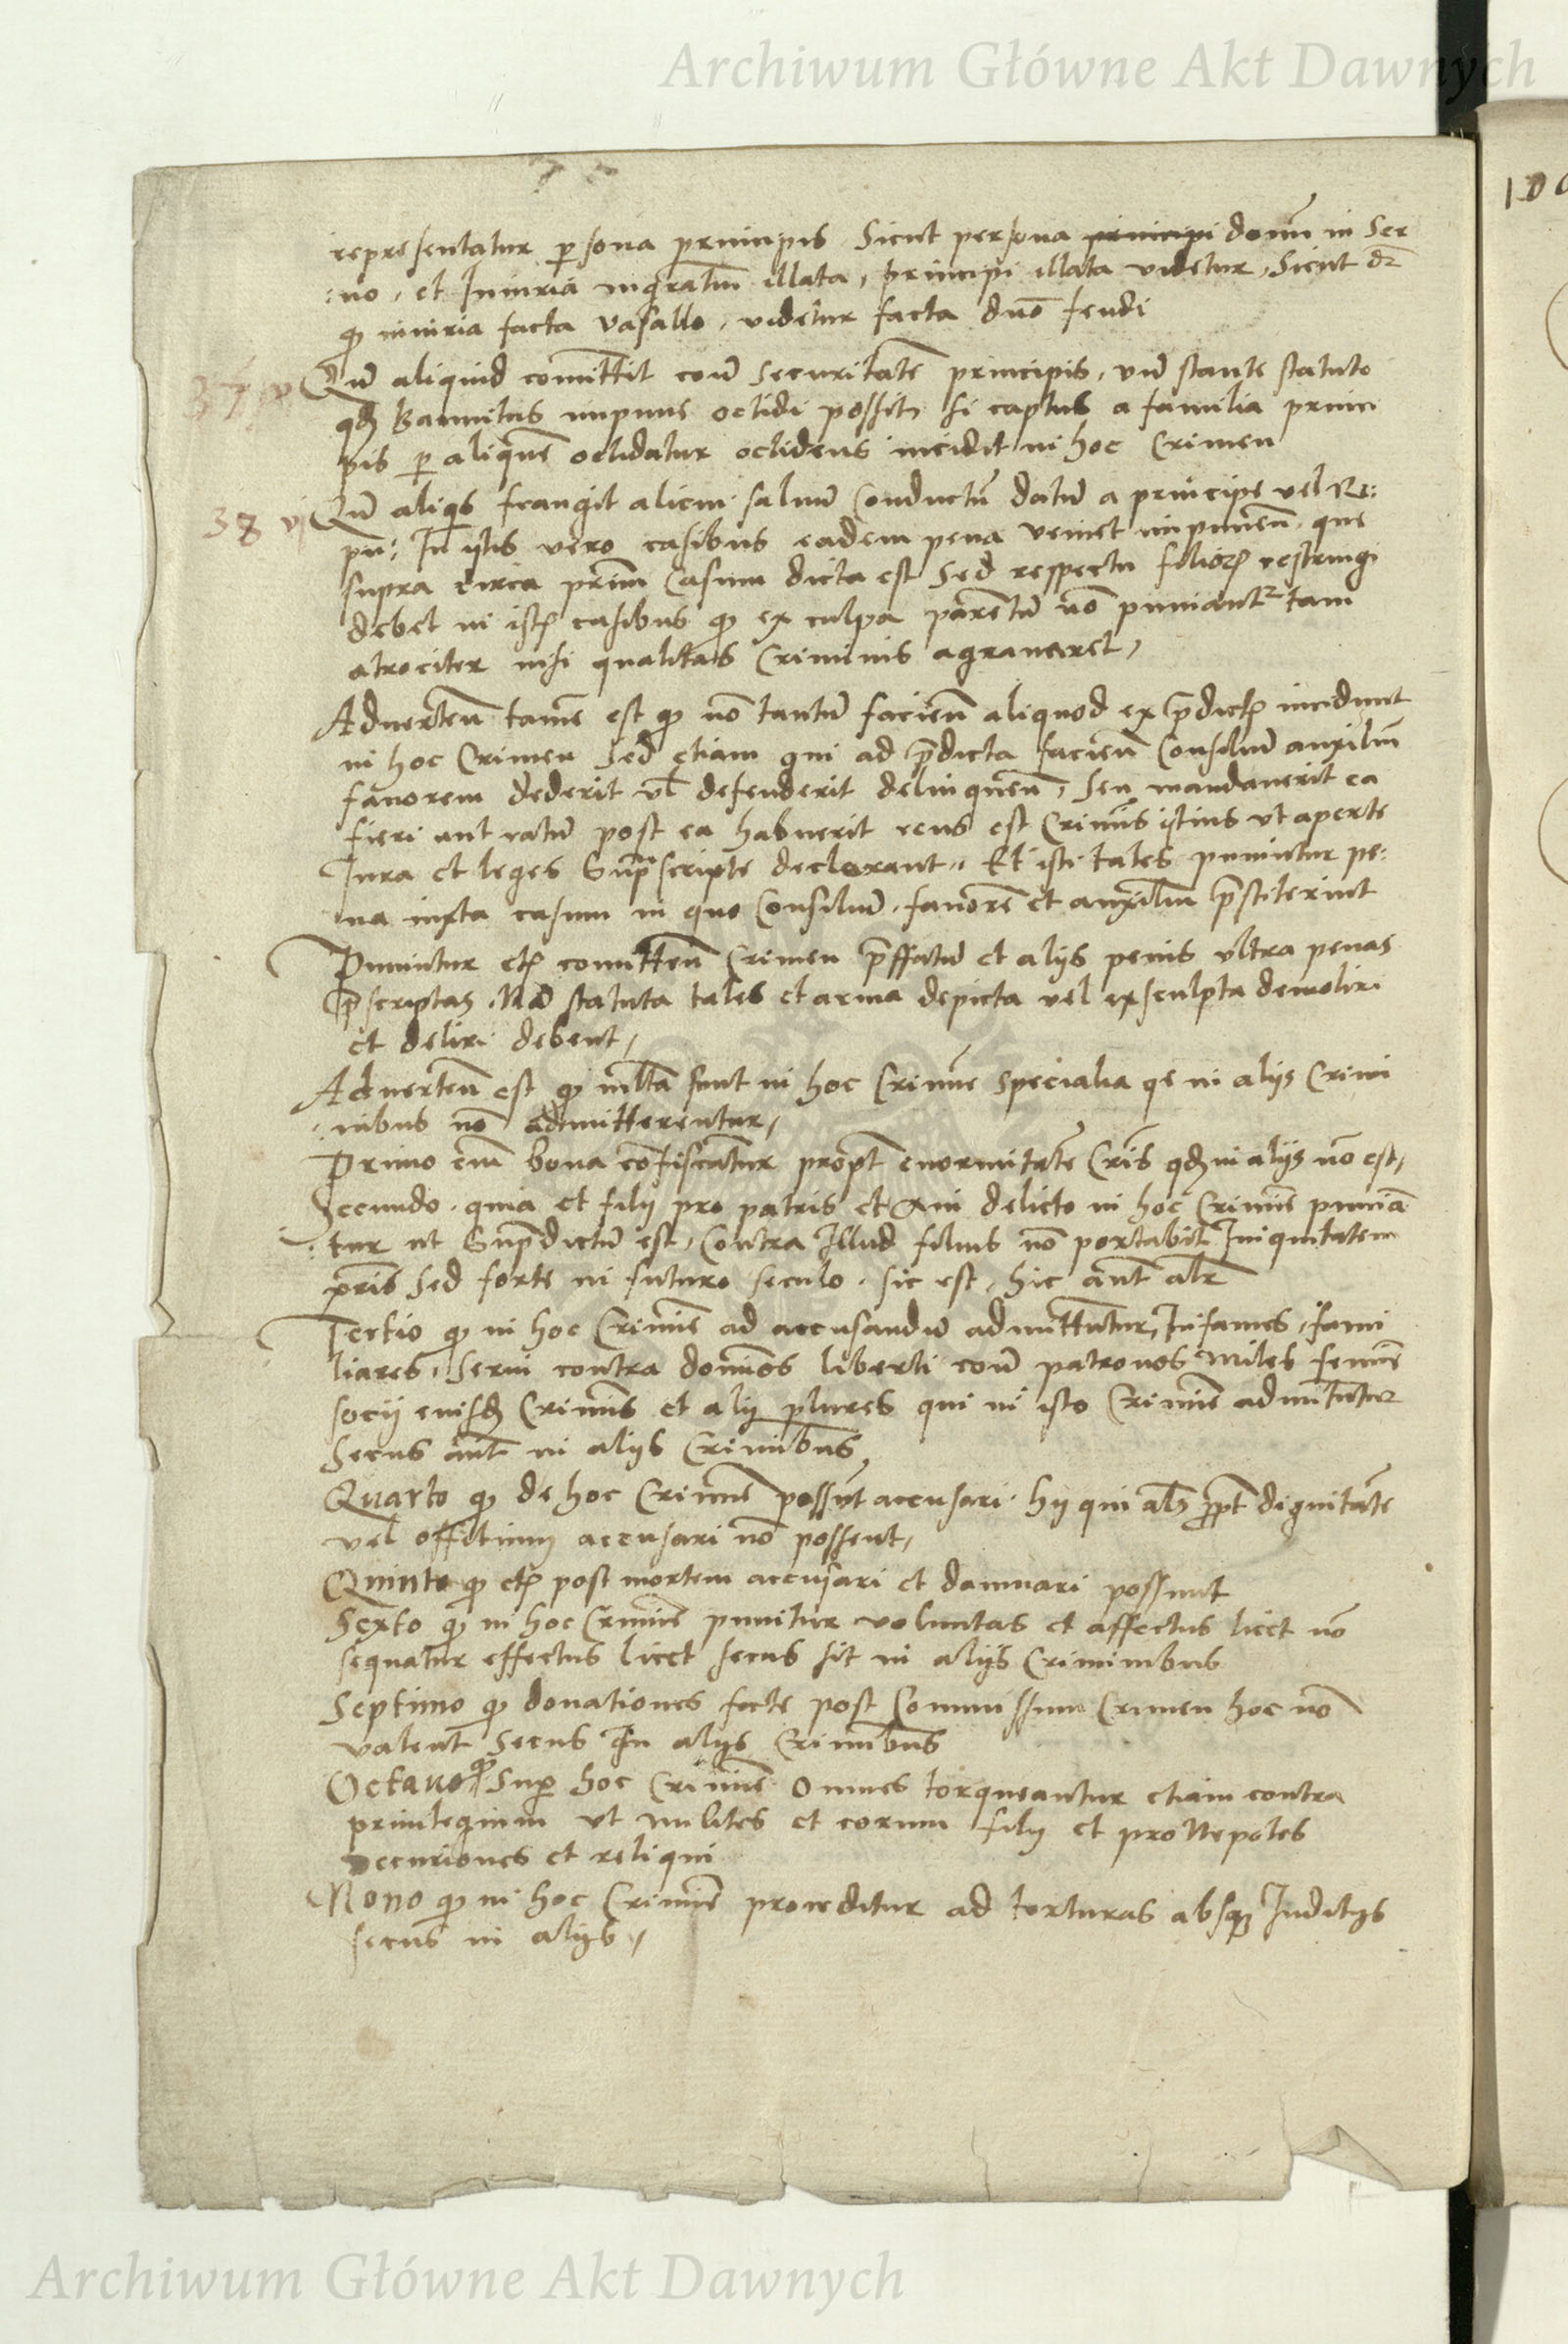 Archiwum Główne Akt Dawnych
representatur p sona principis Sicut persona principi domi in Ser
:uo, et Iniuria mgratui illata, principi illata videtur, Sicut dr
qz iniuria facta Vasallo, videtur facta dno feudi
37 v Qum aliquid comittit coum Securitate principis, vnu stante statuto
qd Bannitus impune occidi possit, si captus a familia princi
pis p alique occidatur occidens incidit in hoc Crimen
38 vj Qum aliqis frangit alicui saluu Conductu datu a principe vel Re:
pu: In istis vero casibus eadem pena veniet imponen. que
supra circa primu Casum dicta est Sed respectu filior restringi
debet in ist casibus qz ex culpa parentu no puniantr tam
atrociter nisi qualitas Criminis agrauaret,
Aduerten tame est qz no tantu facien aliquod ex pdict incidunt
in hoc Crimen Sed etiam qui ad pdicta facien Consiliu auxiliu
fauorem dederit vl defenderit delinquen, Seu mandauerit ea
fieri aut ratu post ea habuerit reus est Crimis istius vt aperte
Iura et leges Supscripte declarant, Et isti tales puniutur pe:
na iuxta casum in quo Consiliu, fauore et auxiliu pstiterint
Puniutur et comitten Crimen pffatu et alijs penis vltra penas
pscriptas, Na statuta tales et arma depicta vel exsculpta demoliri
et deliri debent,
Aduerten est qz mlta sunt in hoc Crimie specialia qe in alijs Crimi
:nibus no admitterentur,
Primo eni bona cofiscatur propt enormitate Cris qd in alijs no est,
Secundo, quia et filij pro patris et Aui delicto in hoc Crimie punia
:tur ut Supdictu est, Contra Illud filius no portabit Iniquitatem
pris Sed forte in futuro seculo, sic est, hic aut alr
Tertio qz in hoc Crimie ad accusandu admittutur, Infames, fami
liares, Serui contra dominos liberti coum patronos Miles femie
socij euisd Crimis et alij plures qui in isto Crimie admitutur
Secus aut in alijs Crimibus
Quarto qz de hoc Crimie possut accusari. hij qui als ppt dignitate
vel offitium accusari no possent,
Quinto qz et post mortem accusari et damnari possunt
Sexto qz in hoc Crimie punitur voluntas et affectus licet no
sequatur effectus licet secus sit in alijs Criminibus
Septimo qz donationes facte post Commissum Crimen hoc no
valent Secus In alijs Crimibus
Octauo qz Sup hoc Crimie Omnes torqueantur etiam contra
priuilegium vt milites et eorum filij et proNepotes
Decuriones et reliqui
Nono qz in hoc Crimie proceditur ad torturas absqz Inditijs
secus in alijs,
Archiwum Główne Akt Dawnych